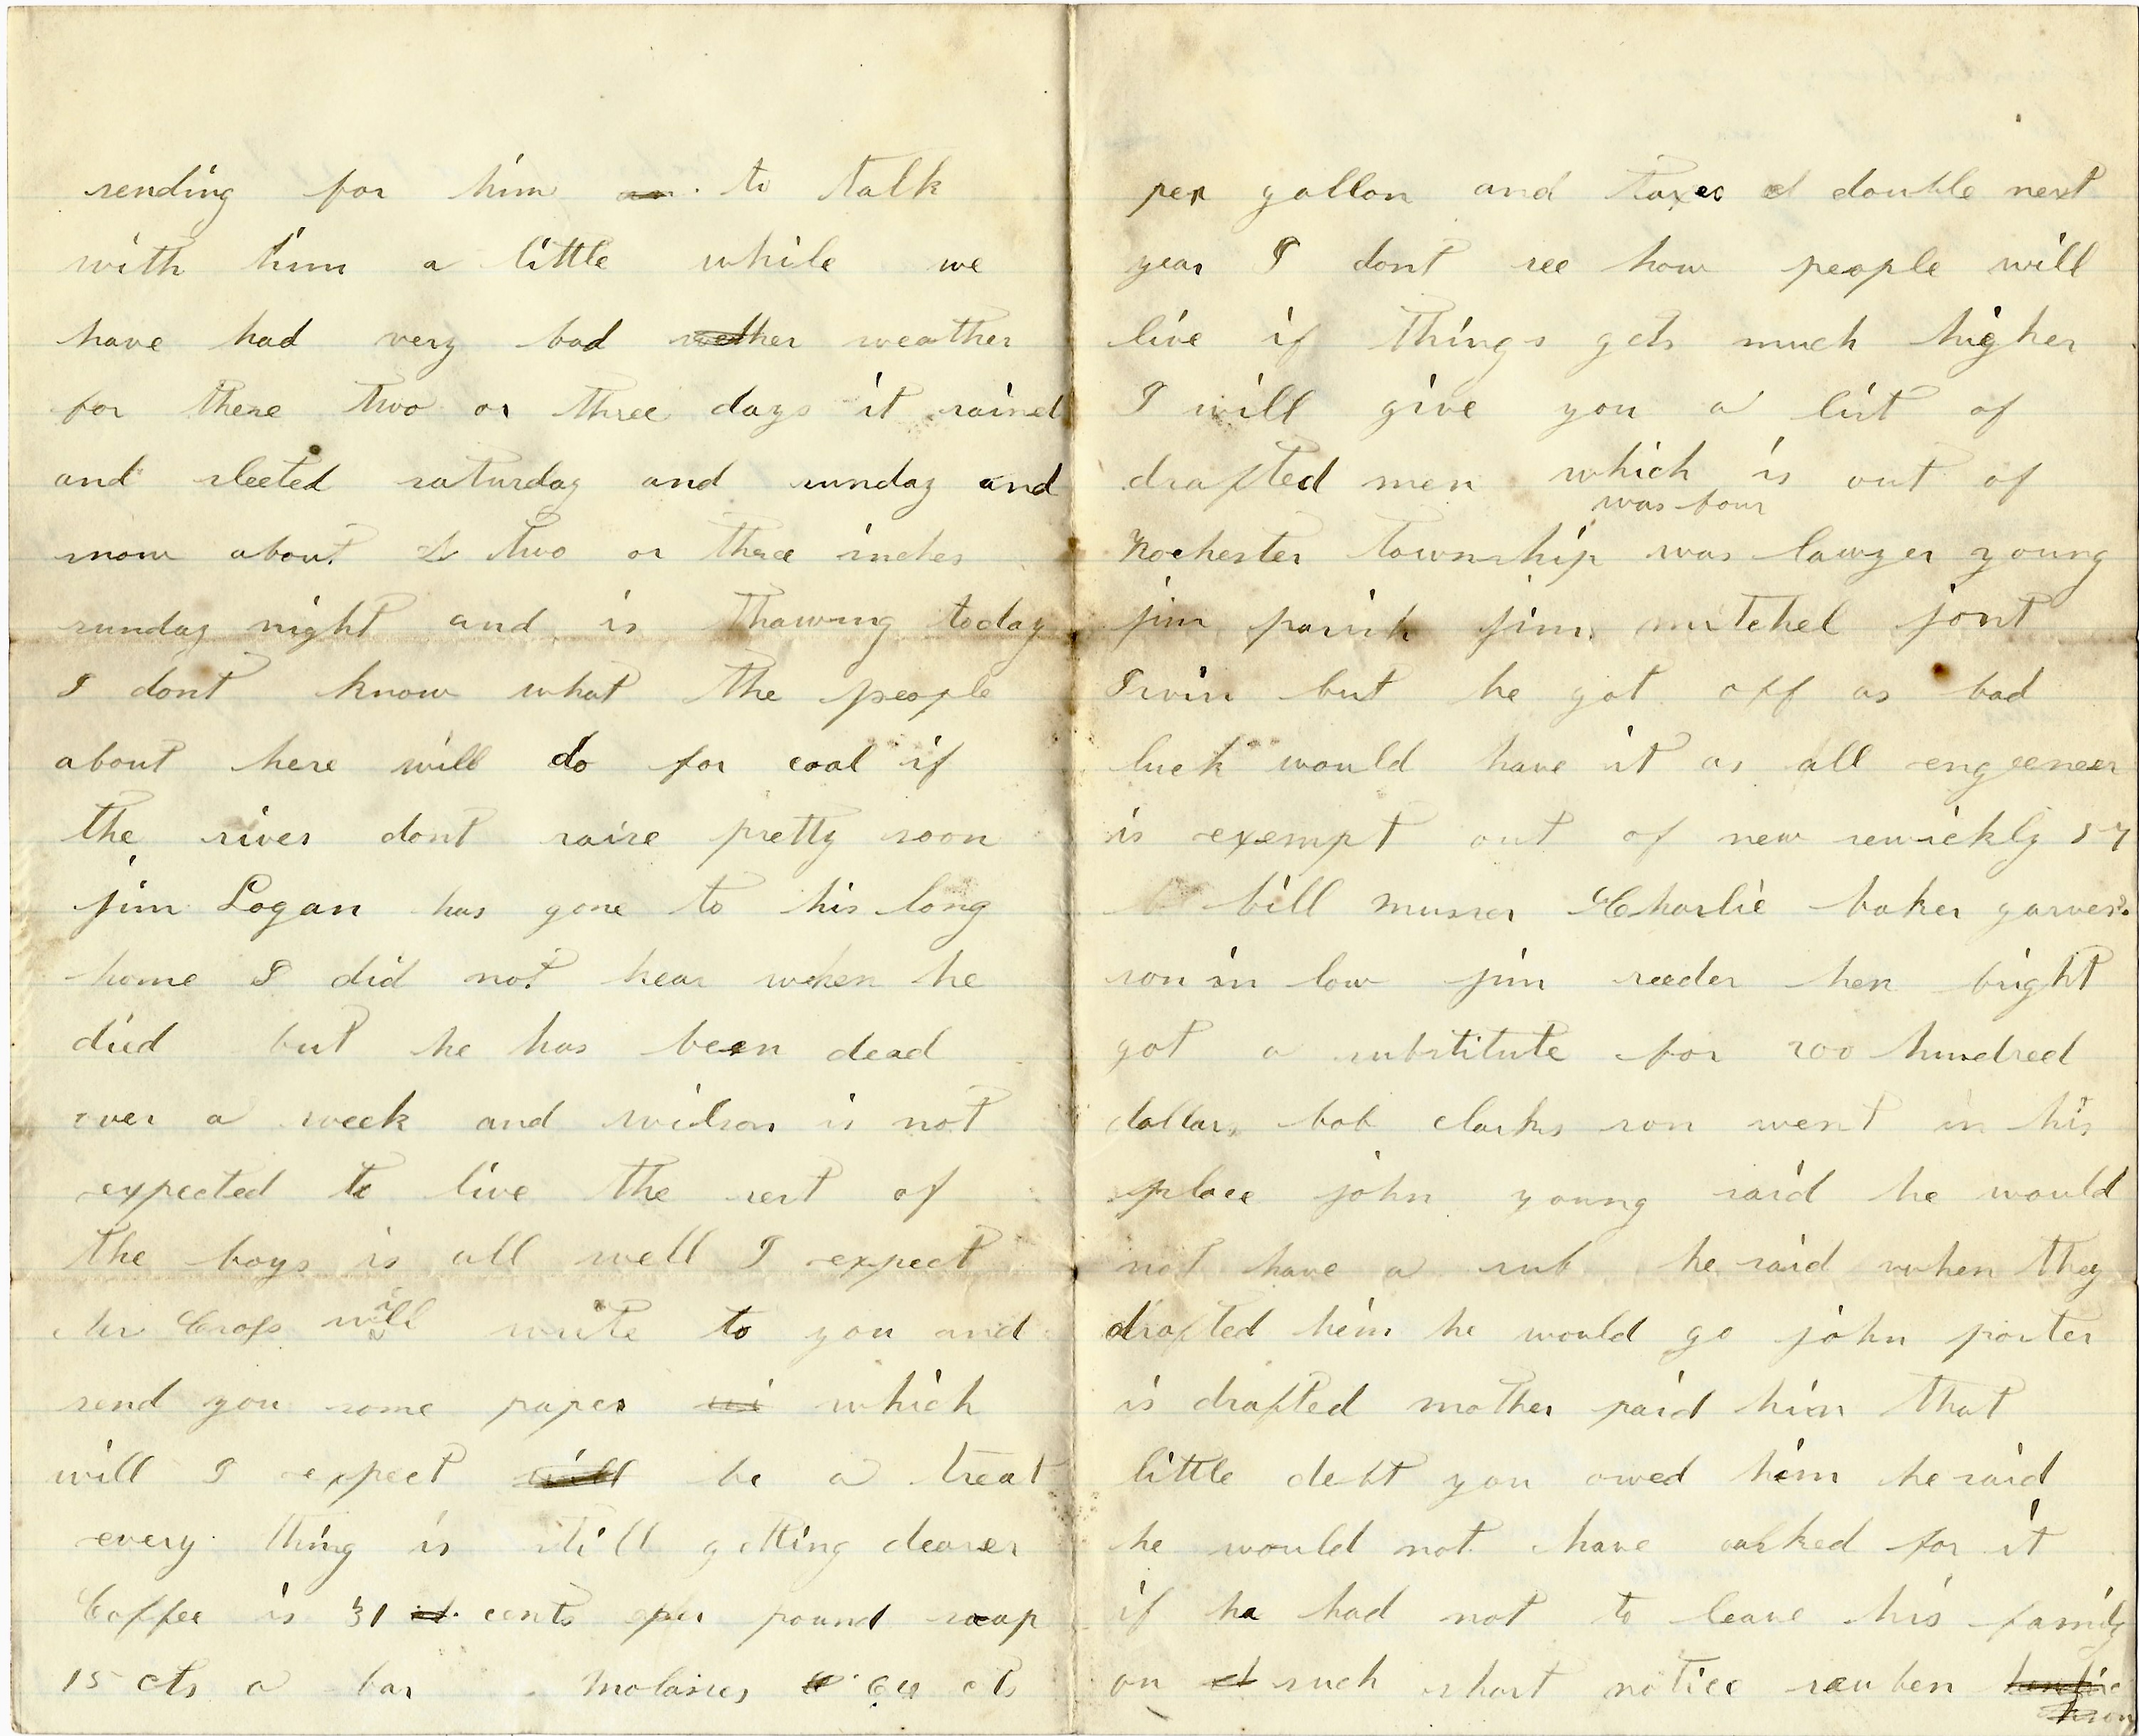 sending for him an to talk
with him a little while we
have had very bad wether weather
for these two or three days it rained
and sleeted saturday and sunday and
snow about two or three inches
sunday night and is thawing today
I dont know what the people
about here will do for coal if
the river dont raise pretty soon
jim Logan has gone to his long
home I did not hear when he
died but he has been dead
over a week and wilson is not
expected to live the rest of
the boys is all well I expect
Mr Cross will write to you and
send you some paper wi which
will I expect will be a treat
every thing is still getting dearer
Coffee is 31 ct cents per pound soap
15 cts a bar Molasses cts
per gallon and taxes double next
year I dont see how people will
live if things gets much higher
I will give you a list of
drafted men which is out of
was four
Rochester township was lawyer young
jim parish jim mitchel jont
Irvin but he got off as bad
luck would have it as all engeeneer
is exempt out of new sewickly 57
bill musser Charlie baker garvers
son in law jim reeder hen bright
got a substitute for 200 hundred
dollars bob clarks son went in his
place john young said he would
not have a sub he said when they
drafted him he would go john porter
is drafted mother paid him that
little debt you owed him he said
he would not have asked for it
if he had not to leave his family
on such short notice reuben